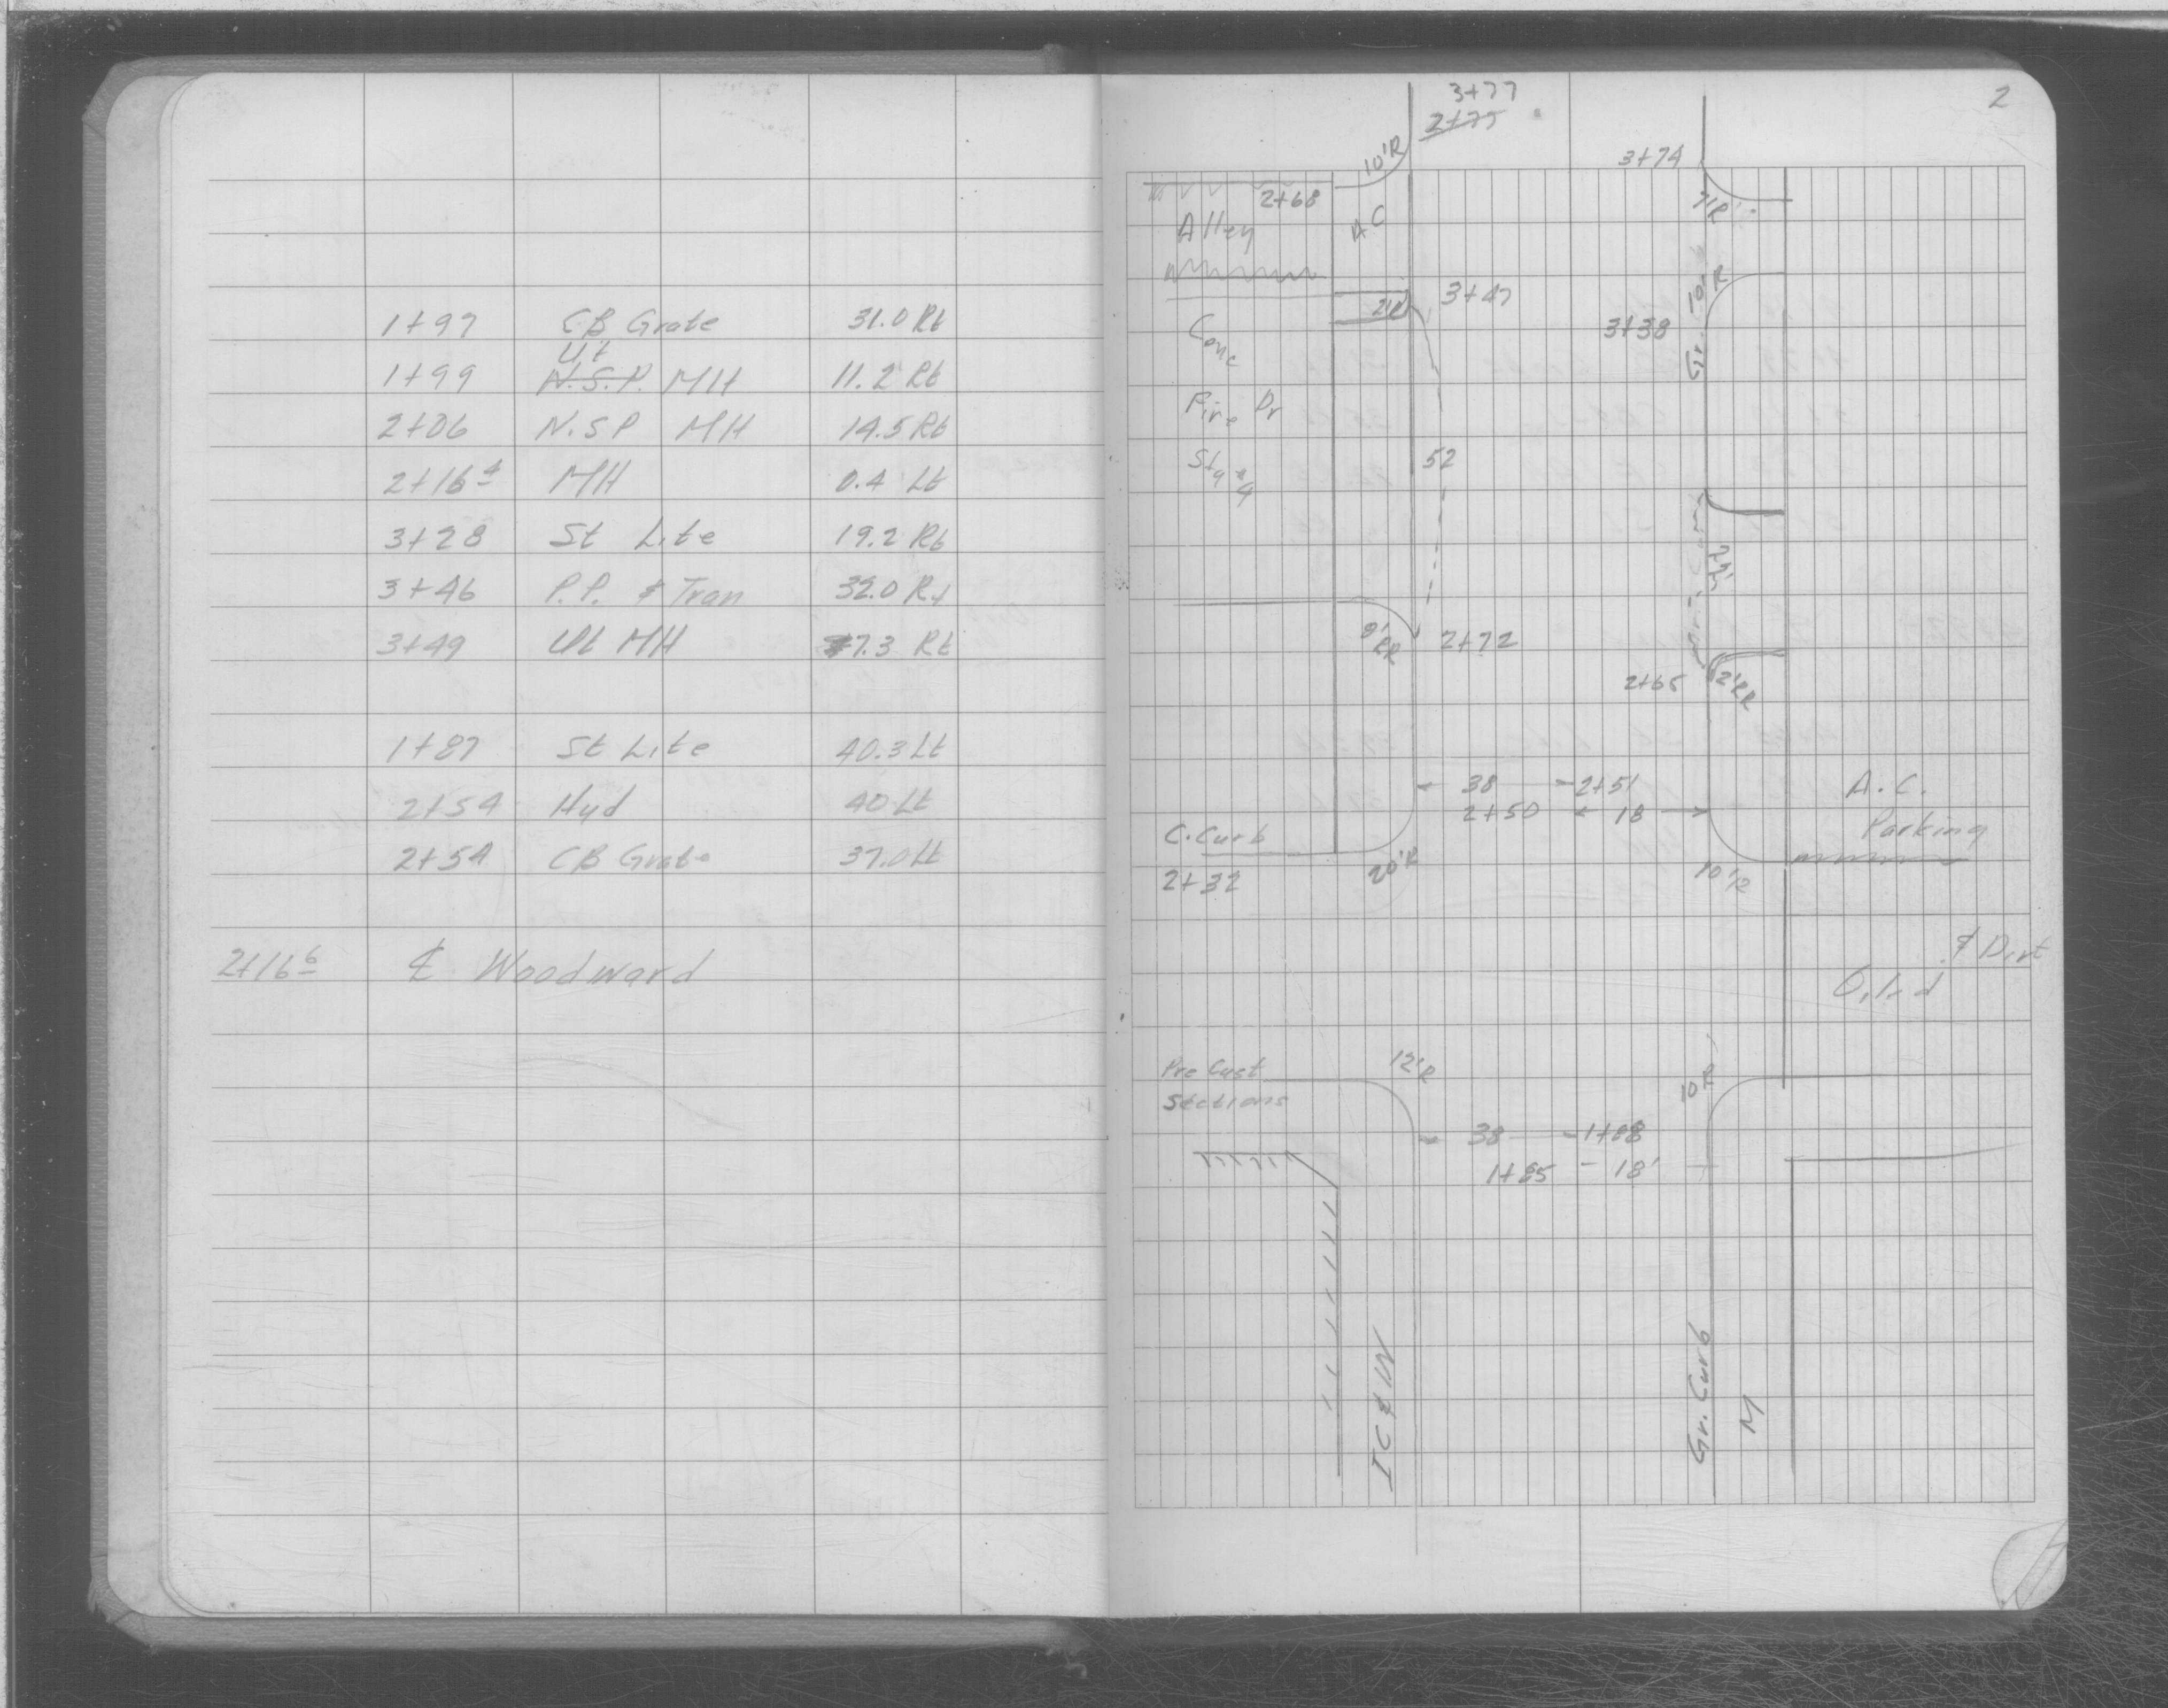 1+97 CB Grate 31.0 Rt
Ut
1+99 N.S.P. MH 11.2 Rt
2+06 N.S.P MH 14.5 Rt
2+16 4 MH 0.4 Lt
3+28 St Lite 19.2 Rt
3+46 P.P. & Tran 32.0 Rt
3+49 Ut MH 7.3 Rt
1+87 St Lite 40.3 Lt
2+54 Hyd 40 Lt
2+54 CB Grate 37.0 Lt
2+16 6 ℄ Woodward
2
3+77
2+75
10'R
3+74
2+68
Alley
AC
Gr.
10'R
2'R
3+47
3+38
Conc
Fire Dr
Sta #4
52
9'RR
2+72
2+65
2'RR
38 2+51
2+50 18
A.C.
Parking
C. Curb
2+32
20'R
10'R
& Dirt
Oiled
Pre Cast
Sections
12'R
10'R
38 1+88
1+85 18'
IC & W
Gr. Curb
M